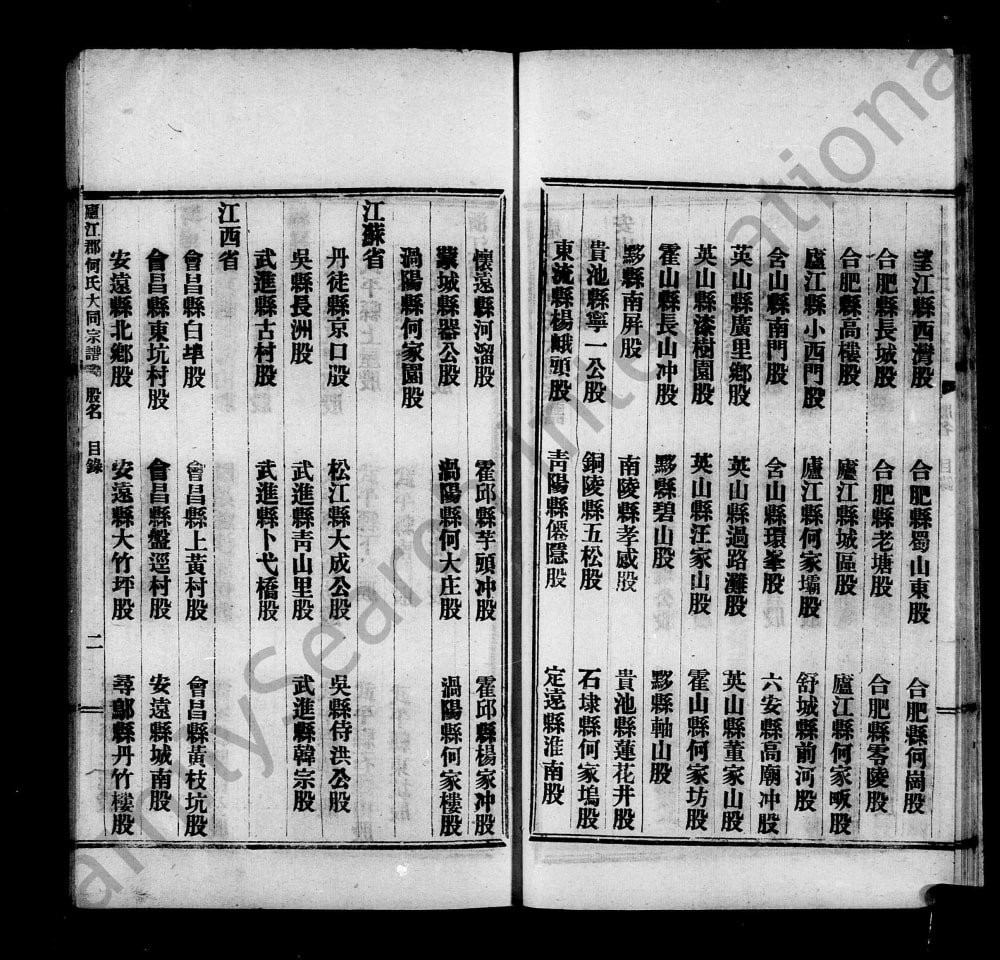 望江縣西灣股 合肥縣蜀山東股 合肥縣何崗股
合肥縣長城股 合肥縣老塘股 合肥縣零陵股
合肥縣高樓股 廬江縣城區股 廬江縣何家畈股
廬江縣小西門股 廬江縣何家壩股 舒城縣前河股
含山縣南門股 含山縣環峯股 六安縣高廟冲股
英山縣廣里鄉股 英山縣過路灘股 英山縣董家山股
英山縣漆樹園股 英山縣汪家山股 霍山縣何家坊股
霍山縣長山冲股 黟縣碧山股 黟縣軸山股
黟縣南屏股 南陵縣孝感股 貴池縣蓮花井股
貴池縣寧一公股 銅陵縣五松股 石埭縣何家塢股
東流縣楊峨頭股 靑陽縣僊隱股 定遠縣淮南股
懷遠縣河溜股 霍邱縣芋頭冲股 霍邱縣楊家冲股
蒙城縣器公股 渦陽縣何大庄股 渦陽縣何家樓股
渦陽縣何家園股
江蘇省
丹徒縣京口股 松江縣大成公股 吳縣侍洪公股
吳縣長洲股 武進縣靑山里股 武進縣韓宗股
武進縣古村股 武進縣卜弋橋股
江西省
會昌縣白埠股 會昌縣上黃村股 會昌縣黃枝坑股
會昌縣東坑村股 會昌縣盤逕村股 安遠縣城南股
安遠縣北鄉股 安遠縣大竹坪股 尋鄔縣丹竹樓股
廬江郡何氏大同宗譜 股名 目錄 二
Search International